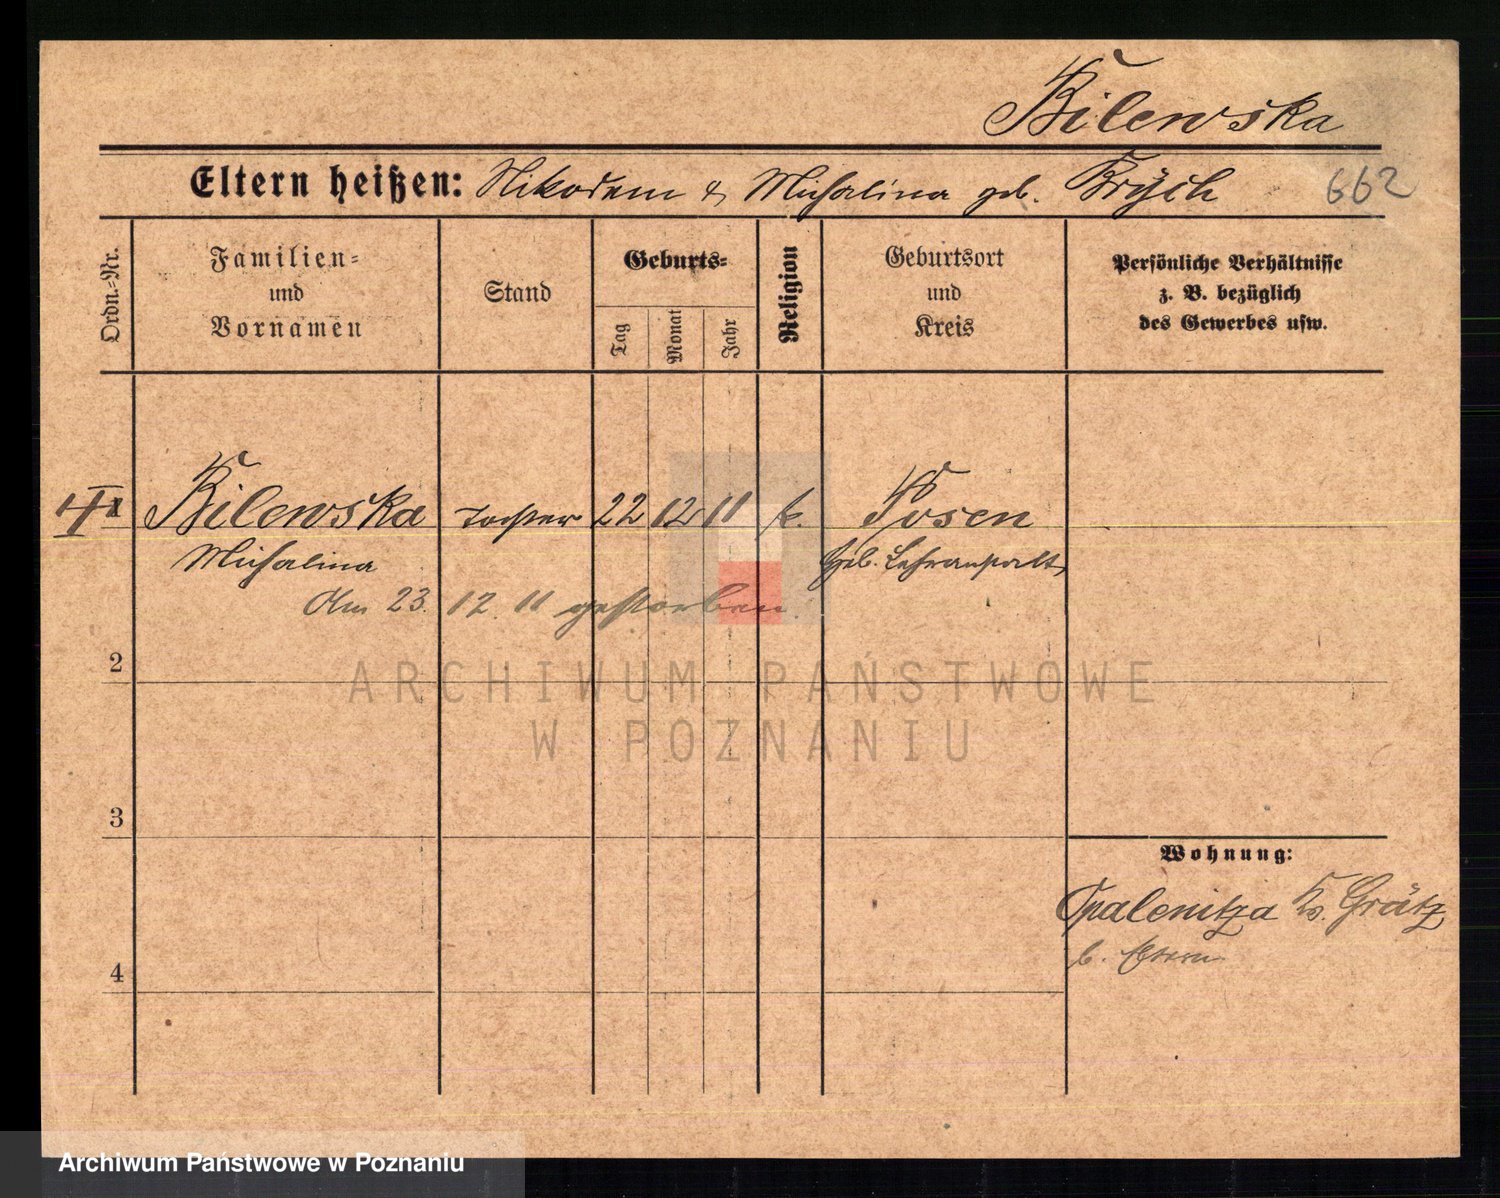 Bilewska
Eltern heißen: Nikodem & Michalina geb. Krych
662
Ordn.-Nr.
Familien-
und
Vornamen
Stand
Geburts-
Tag
Monat
Jahr
Religion
Geburtsort
und
Kreis
Persönliche Verhältnisse
z. B. bezüglich
des Gewerbes usw.
1 Bilewska Tochter 22 12 11 k. Posen
Michalina Geb. Lehranstalt
Am 23. 12. 11 gestorben.
2
3
4
Wohnung:
Opalenitza Kr. Grätz
b. Eltern
ARCHIWUM PAŃSTWOWE
W POZNANIU
Archiwum Państwowe w Poznaniu